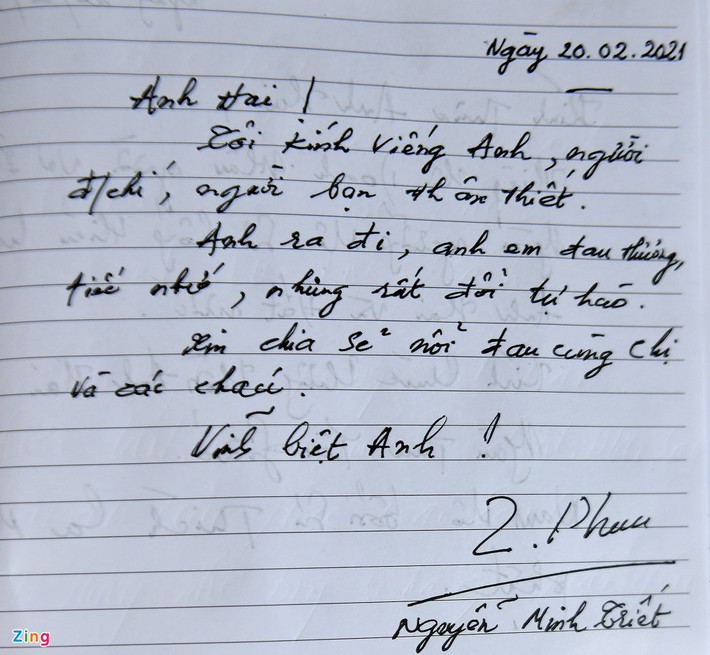 Ngày 20.02.2021
Anh Hai !
Tôi kính viếng Anh, người
đ/chí, người bạn thân thiết.
Anh ra đi, anh em đau thương,
tiếc nhớ, nhưng rất đỗi tự hào.
Xin chia sẻ nỗi đau cùng chị
và các cháu.
Vĩnh biệt Anh !
Nguyễn Minh Triết
Zing